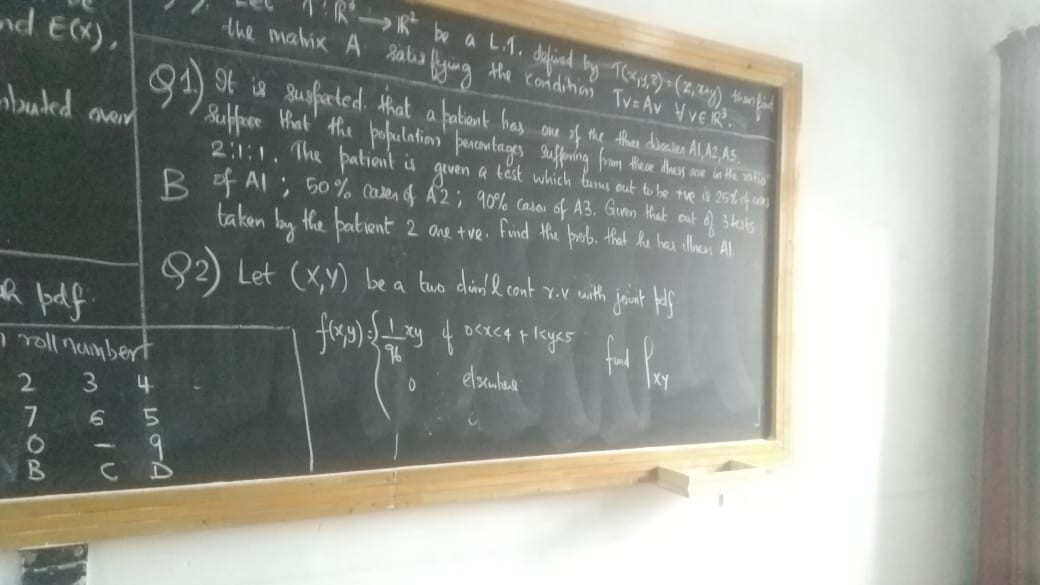 nd E(X),
nbuted over
pdf.
roll number
2 3 4
7 6 5
0 – 9
B C D
Let T: ℝ³ → ℝ² be a L.T. defined by T(x,y,z)=(z, x+y) then find
the matrix A satisfying the condition Tv = Av ∀ v ∈ ℝ³.
Q1) It is suspected that a patient has one of the three diseases A1, A2, A3.
Suppose that the population percentages suffering from these illness are in the ratio
2:1:1. The patient is given a test which turns out to be +ve is 25% of cases
B of A1; 50% cases of A2; 90% cases of A3. Given that out of 3 tests
taken by the patient 2 are +ve. find the prob. that he has illness A1
Q2) Let (X,Y) be a two dim'l cont r.v with joint pdf
f(x,y) = { 1/96 xy if 0<x<4 + 1<y<5
0 elsewhere find ρxy